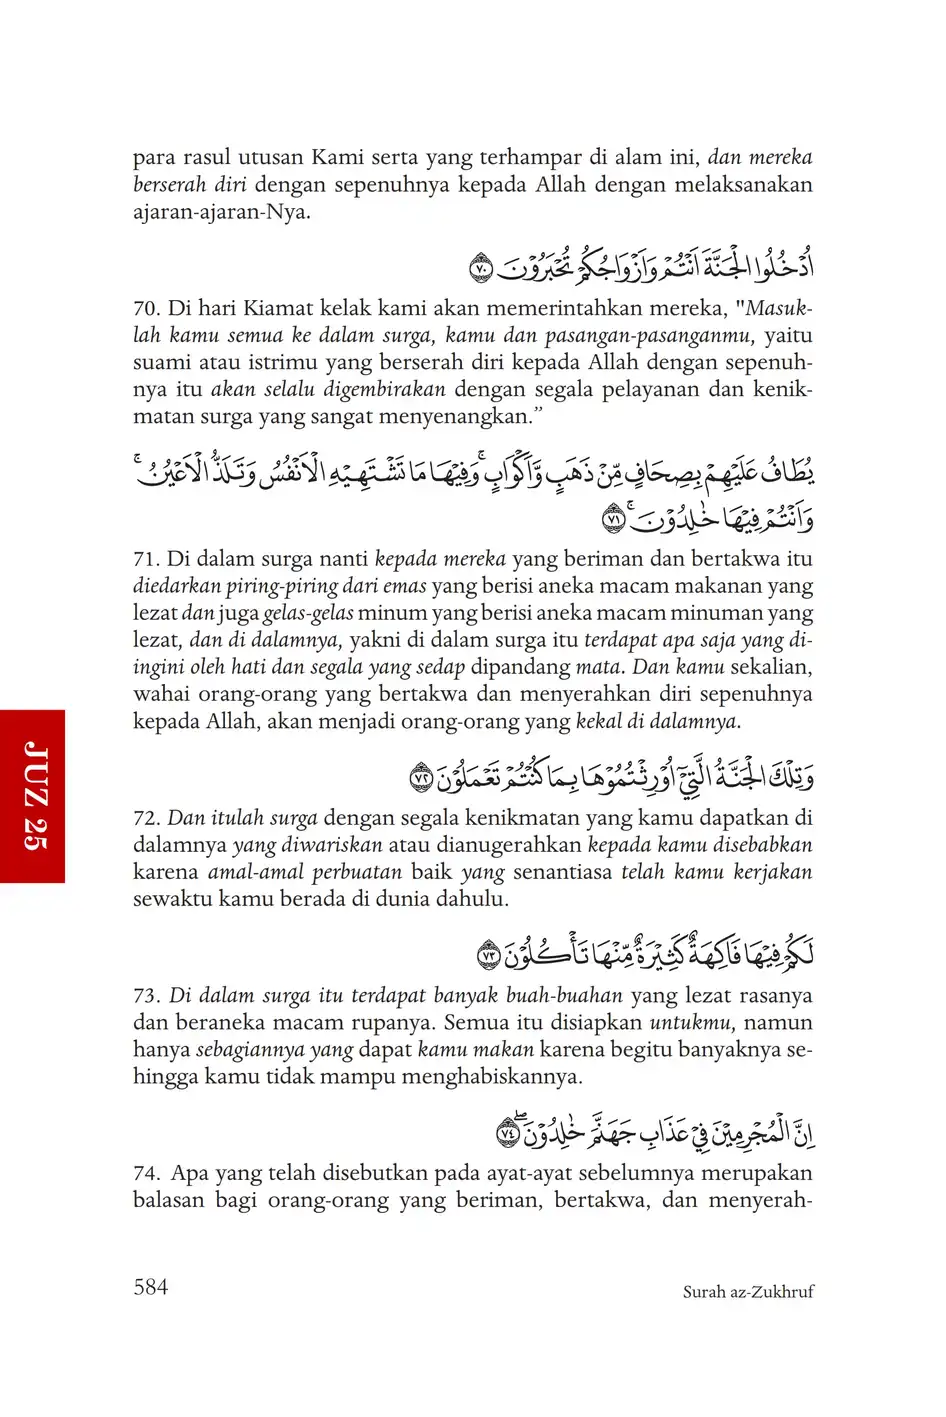 para rasul utusan Kami serta yang terhampar di alam ini, dan mereka
berserah diri dengan sepenuhnya kepada Allah dengan melaksanakan
ajaran-ajaran-Nya.
اُدْخُلُوا الْجَنَّةَ اَنْتُمْ وَاَزْوَاجُكُمْ تُحْبَرُوْنَ ٧٠
70. Di hari Kiamat kelak kami akan memerintahkan mereka, "Masuk-
lah kamu semua ke dalam surga, kamu dan pasangan-pasanganmu, yaitu
suami atau istrimu yang berserah diri kepada Allah dengan sepenuh-
nya itu akan selalu digembirakan dengan segala pelayanan dan kenik-
matan surga yang sangat menyenangkan.”
يُطَافُ عَلَيْهِمْ بِصِحَافٍ مِّنْ ذَهَبٍ وَّاَكْوَابٍ ۚوَفِيْهَا مَا تَشْتَهِيْهِ الْاَنْفُسُ وَتَلَذُّ الْاَعْيُنُ ۚ
وَاَنْتُمْ فِيْهَا خٰلِدُوْنَ ۚ ٧١
71. Di dalam surga nanti kepada mereka yang beriman dan bertakwa itu
diedarkan piring-piring dari emas yang berisi aneka macam makanan yang
lezat dan juga gelas-gelas minum yang berisi aneka macam minuman yang
lezat, dan di dalamnya, yakni di dalam surga itu terdapat apa saja yang di-
ingini oleh hati dan segala yang sedap dipandang mata. Dan kamu sekalian,
wahai orang-orang yang bertakwa dan menyerahkan diri sepenuhnya
kepada Allah, akan menjadi orang-orang yang kekal di dalamnya.
وَتِلْكَ الْجَنَّةُ الَّتِيْٓ اُوْرِثْتُمُوْهَا بِمَا كُنْتُمْ تَعْمَلُوْنَ ٧٢
72. Dan itulah surga dengan segala kenikmatan yang kamu dapatkan di
dalamnya yang diwariskan atau dianugerahkan kepada kamu disebabkan
karena amal-amal perbuatan baik yang senantiasa telah kamu kerjakan
sewaktu kamu berada di dunia dahulu.
لَكُمْ فِيْهَا فَاكِهَةٌ كَثِيْرَةٌ مِّنْهَا تَأْكُلُوْنَ ٧٣
73. Di dalam surga itu terdapat banyak buah-buahan yang lezat rasanya
dan beraneka macam rupanya. Semua itu disiapkan untukmu, namun
hanya sebagiannya yang dapat kamu makan karena begitu banyaknya se-
hingga kamu tidak mampu menghabiskannya.
اِنَّ الْمُجْرِمِيْنَ فِيْ عَذَابِ جَهَنَّمَ خٰلِدُوْنَ ۖ ٧٤
74. Apa yang telah disebutkan pada ayat-ayat sebelumnya merupakan
balasan bagi orang-orang yang beriman, bertakwa, dan menyerah-
JUZ 25
584
Surah az-Zukhruf